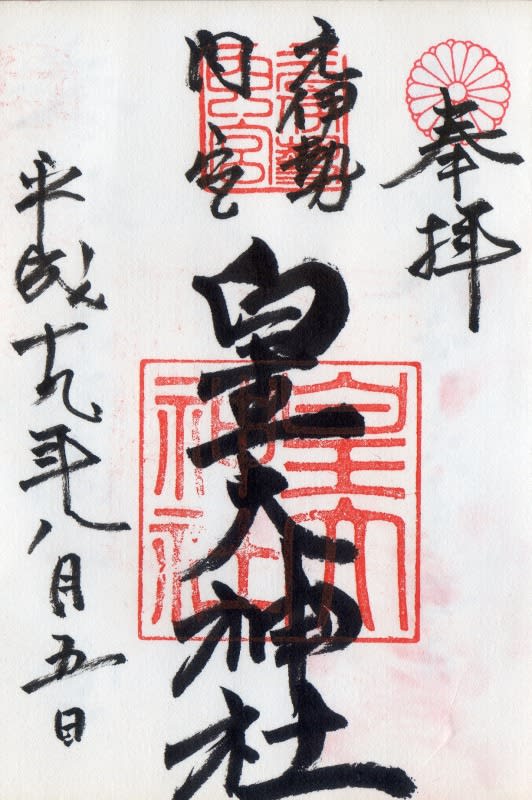 奉拝
元伊勢
内宮
皇大神社
平成十九年八月五日
皇大
神社